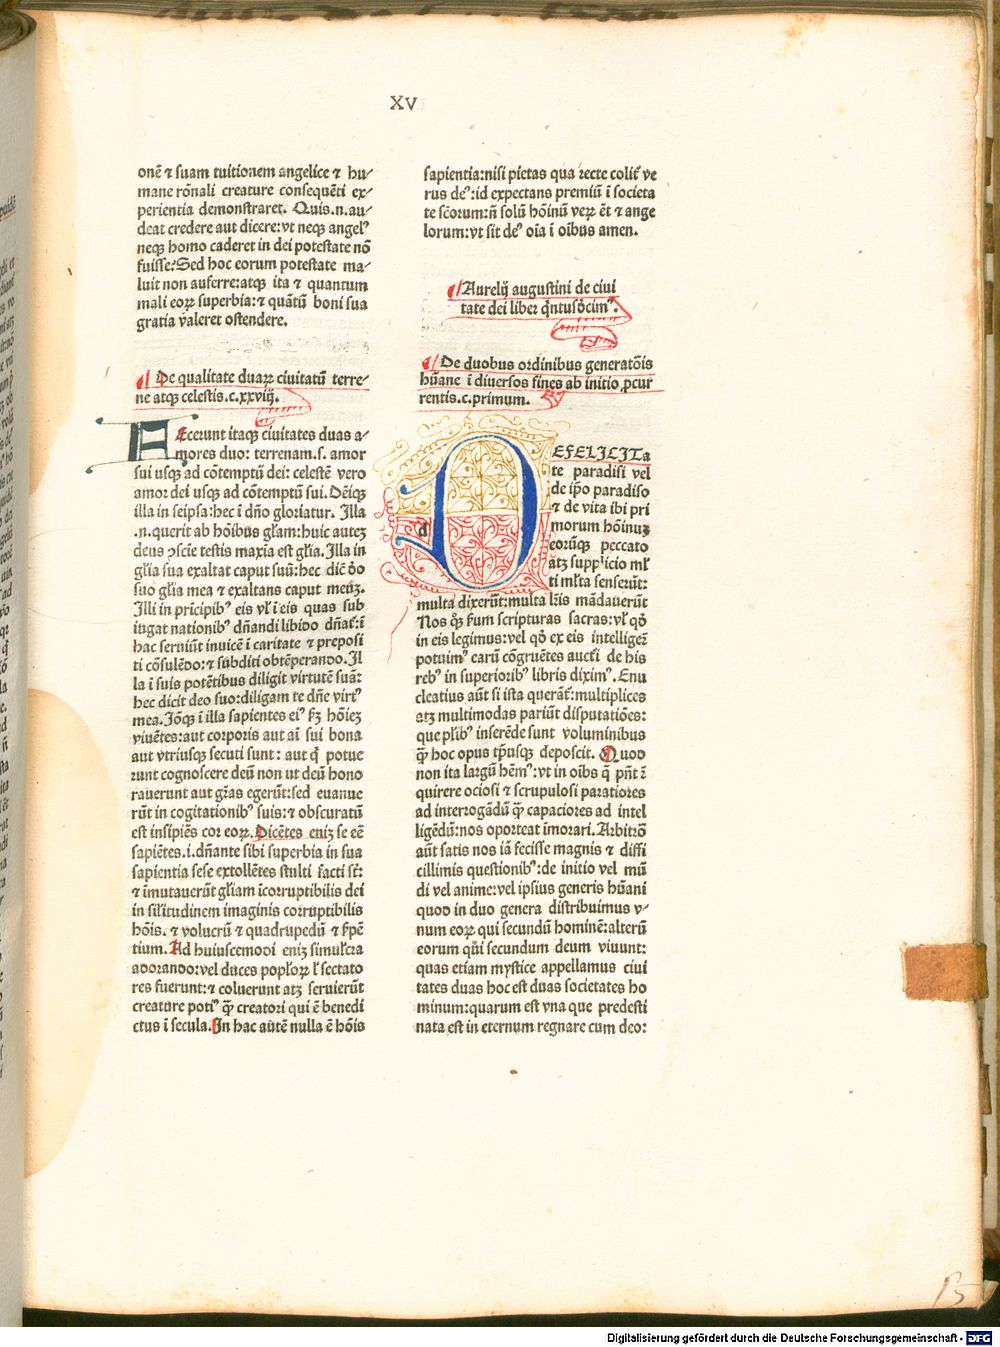 XV
onē ⁊ suam tuitionem angelice ⁊ hu⸗
mane rōnali creature consequēti ex⸗
perientia demonstraret. Quis.n.au⸗
deat credere aut dicere:vt neqꝫ angelꝰ
neqꝫ homo caderet in dei potestate nō
fuisse?Sed hoc eorum potestate ma⸗
luit non auferre:atqꝫ ita ⁊ quantum
mali eoꝝ superbia:⁊ quātū boni sua
gratia valeret ostendere.
De qualitate duaꝝ ciuitatū terre⸗
ne atqꝫ celestis.c.xxviij.
Fecerunt itaqꝫ ciuitates duas a⸗
mores duo: terrenam.s. amor
sui usqꝫ ad cōtemptū dei: celestē vero
amor dei usqꝫ ad cōtemptū sui. Dēiqꝫ
illa in seipsa:hec ī dn̄o gloriatur. Illa
.n.querit ab hōibus gl̄am:huic auteꝫ
deus ↄscīe testis maxīa est gl̄ia. Illa in
gl̄ia sua exaltat caput suū:hec dic̄ dō
suo gl̄ia mea ⁊ exaltans caput meuꝫ.
Illi in prīcipibꝰ eis vl̄ ī eis quas sub
iugat nationibꝰ dn̄andi libido dn̄at᷑:ī
hac seruiūt inuicē ī caritate ⁊ preposi
ti cōsulēdo:⁊ subditi obtēperando. Il
la ī suis potētibus diligit virtutē suā:
hec dicit deo suo:diligam te dn̄e virtꝰ
mea. Jōqꝫ ī illa sapientes eiꝰ ẜꝫ hōieꝫ
viuētes:aut corporis aut aī sui bona
aut vtriusqꝫ secuti sunt: aut q̄ potue
runt cognoscere deū non ut deū hono
rauerunt aut gr̄as egerūt:sed euanue
rūt in cogitationibꝰ suis:⁊ obscuratū
est insipiēs cor eoꝝ. Dicētes eniꝫ se eē
sapiētes.i.dn̄ante sibi superbia in sua
sapientia sese extollētes stulti facti sr̄:
⁊ īmutauerūt gl̄iam īcorruptibilis dei
in sil̄itudinem imaginis corruptibilis
hōis. ⁊ volucrū ⁊ quadrupedū ⁊ ẜpē
tium. Ad huiuscemodi eniꝫ simul̄cra
adorando:vel duces popl̄oꝝ l̄ sectato
res fuerunt:⁊ coluerunt atꝫ seruierūt
creature potiꝰ q̄ꝫ creatori qui ē benedi
ctus ī secula. In hac autē nulla ē hōis
sapientia:nisi pietas qua recte colit᷑ ve
rus deꝰ:id expectans premiū ī societa
te scōrum:n̄ solū hōinū veꝝ ēt ⁊ ange
lorum:vt sit deꝰ oīa ī oībus amen.
Aurelij augustini de ciui
tate dei liber qͥntusdecimꝰ.
De duobus ordinibus generatōis
hūane ī diuersos fines ab initio ꝓcur
rentis.c.primum.
d EFELICITa
te paradisi vel
de ipō paradiso
⁊ de vita ibi pri
morum hōinuꝫ
eorūqꝫ peccato
atꝫ supplicio ml̄
ti ml̄ta senserūt:
multa dixerūt:multa lr̄is mādauerūt
Nos qͦꝫ ẜum scripturas sacras:vl̄ qͦ
in eis legimus:vel qͦ ex eis intelligeꝫ
potuimꝰ earū cōgruētes auctī de his
rebꝰ in superioribꝰ libris diximꝰ. Enu
cleatius aūt si ista querāt᷑:multiplices
atꝫ multimodas pariūt disputatiōes:
que pl̄ibꝰ inserēde sunt voluminibus
q̄ꝫ hoc opus tp̄usqꝫ deposcit. Quod
non ita largū hēmꝰ:vt in oībs q̄ pn̄t ī
quirere ociosi ⁊ scrupulosi paratiores
ad interrogādū q̄ꝫ capaciores ad intel
ligēdū:nos oporteat īmorari. Arbitrō
aūt satis nos iā fecisse magnis ⁊ diffi
cillimis questionibꝰ:de initio vel mū
di vel anime:vel ipsius generis hūani
quod in duo genera distribuimus v⸗
num eoꝝ qui secundū hominē:alterū
eorum qui secundum deum viuunt:
quas etiam mystice appellamus ciui
tates duas hoc est duas societates ho
minum:quarum est vna que predesti
nata est in eternum regnare cum deo:
15
Digitalisierung gefördert durch die Deutsche Forschungsgemeinschaft - DFG